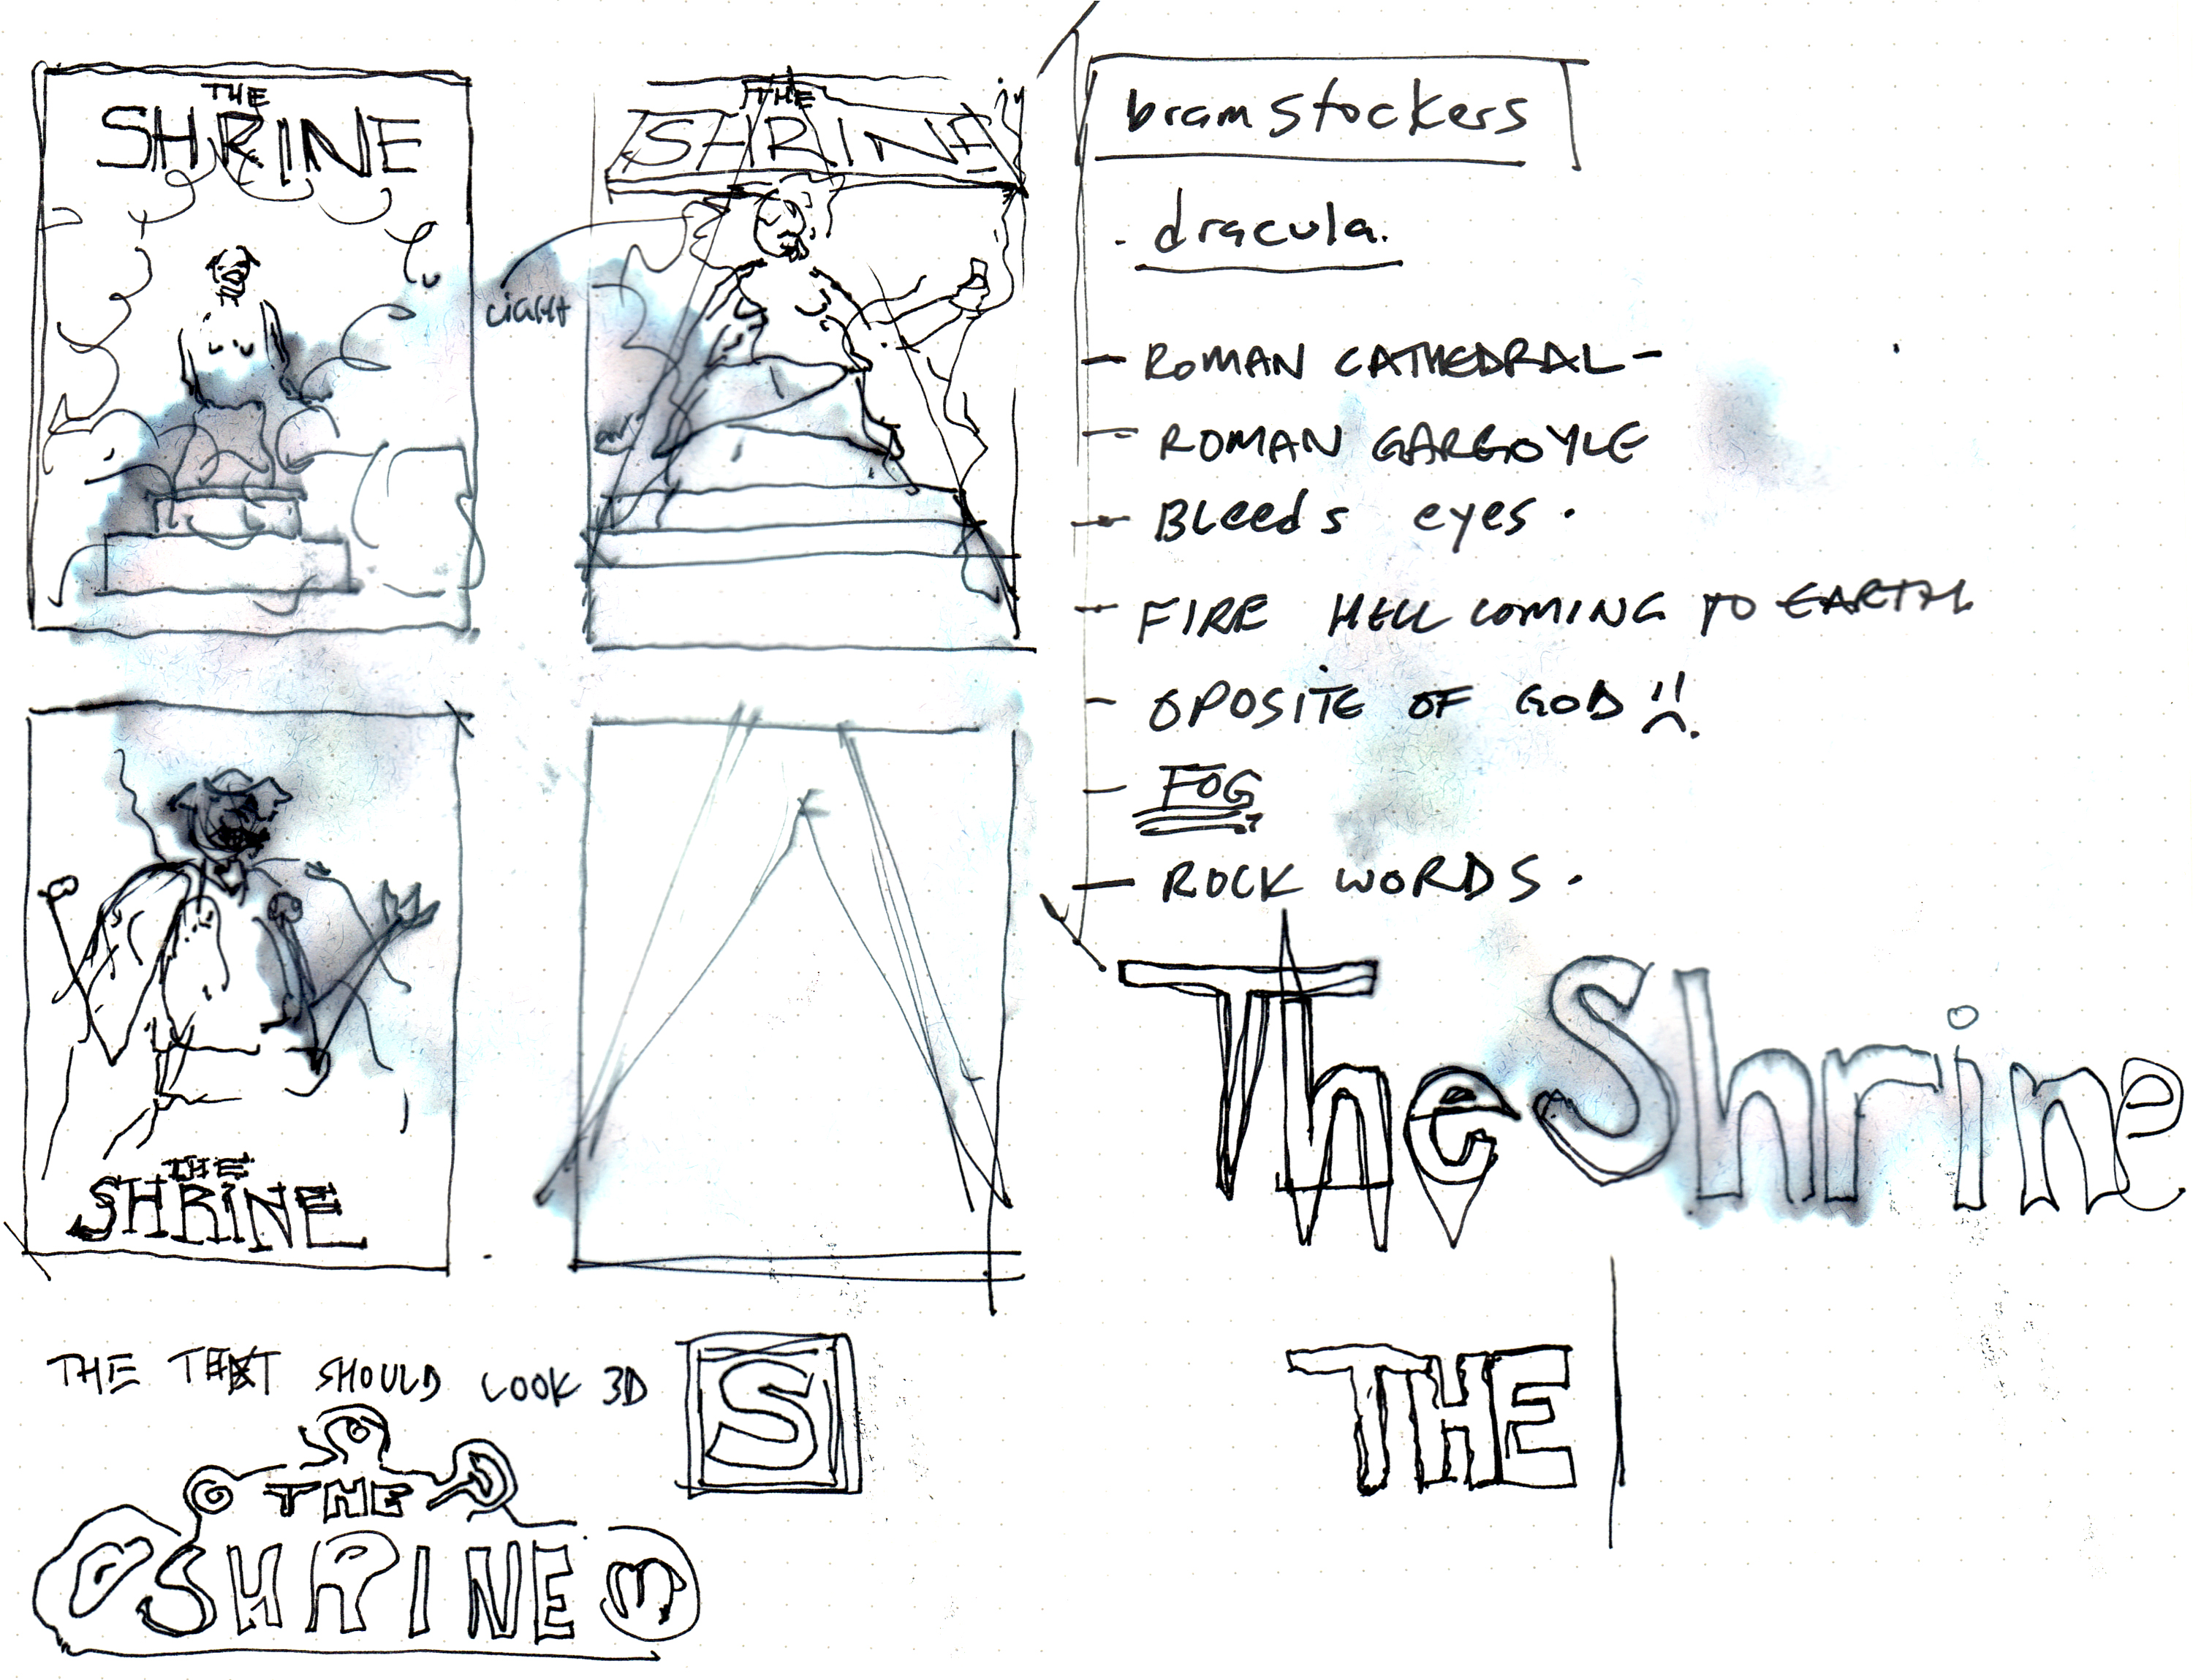 THE
SHRINE
THE
SHRINE
bram stockers
. dracula.
- ROMAN CATHEDRAL -
- ROMAN GARGOYLE
- BLeeds eyes .
- FIRE HELL COMING TO EARTH
- OPOSITE OF GOD !!
- FOG
- ROCK WORDS .
THE
SHRINE
The Shrine
THE TEXT SHOULD LOOK 3D
S
THE
THE
SHRINE